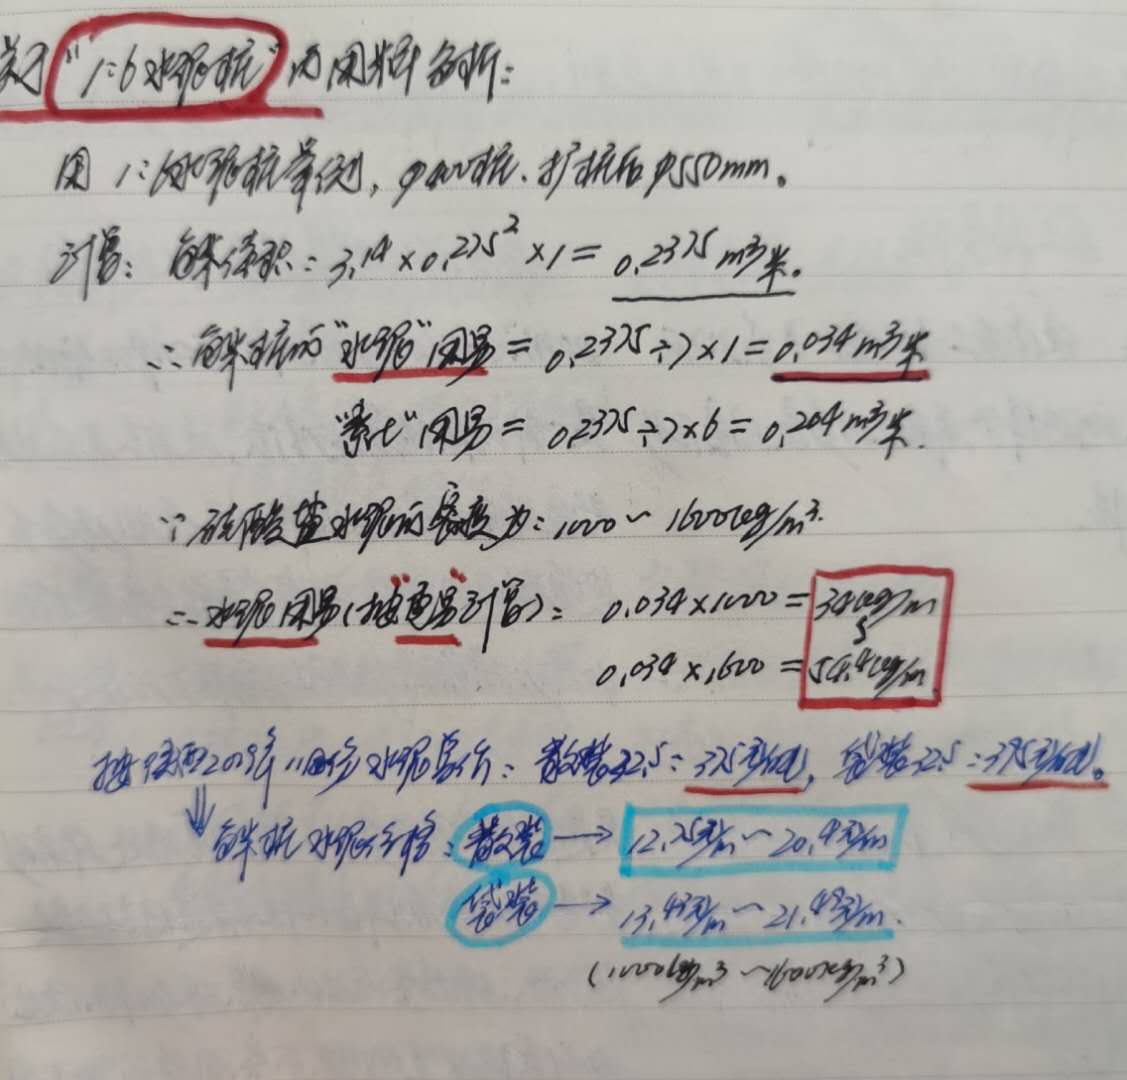 关于"1:6水泥桩"的用料分析:
用1:6水泥桩举例,φ400桩.扩桩后φ550mm。
计算:每米体积:3.14×0.275²×1=0.2375m³/米。
∴每米桩的"水泥"用量=0.2375÷7×1=0.034m³/米
"素土"用量=0.2375÷7×6=0.204m³/米.
∵硅酸盐水泥的容度为:1000~1600kg/m³.
∴水泥用量(按"重量"计算):0.034×1000=34kg/m
~
0.034×1600=54.4kg/m
按陕西2019年11月份水泥单价:散装32.5:375元/吨,袋装32.5:395元/吨。
⇓每米桩水泥价格:散装→12.75元/m~20.4元/m
袋装→13.43元/m~21.49元/m.
(1000kg/m³~1600kg/m³)